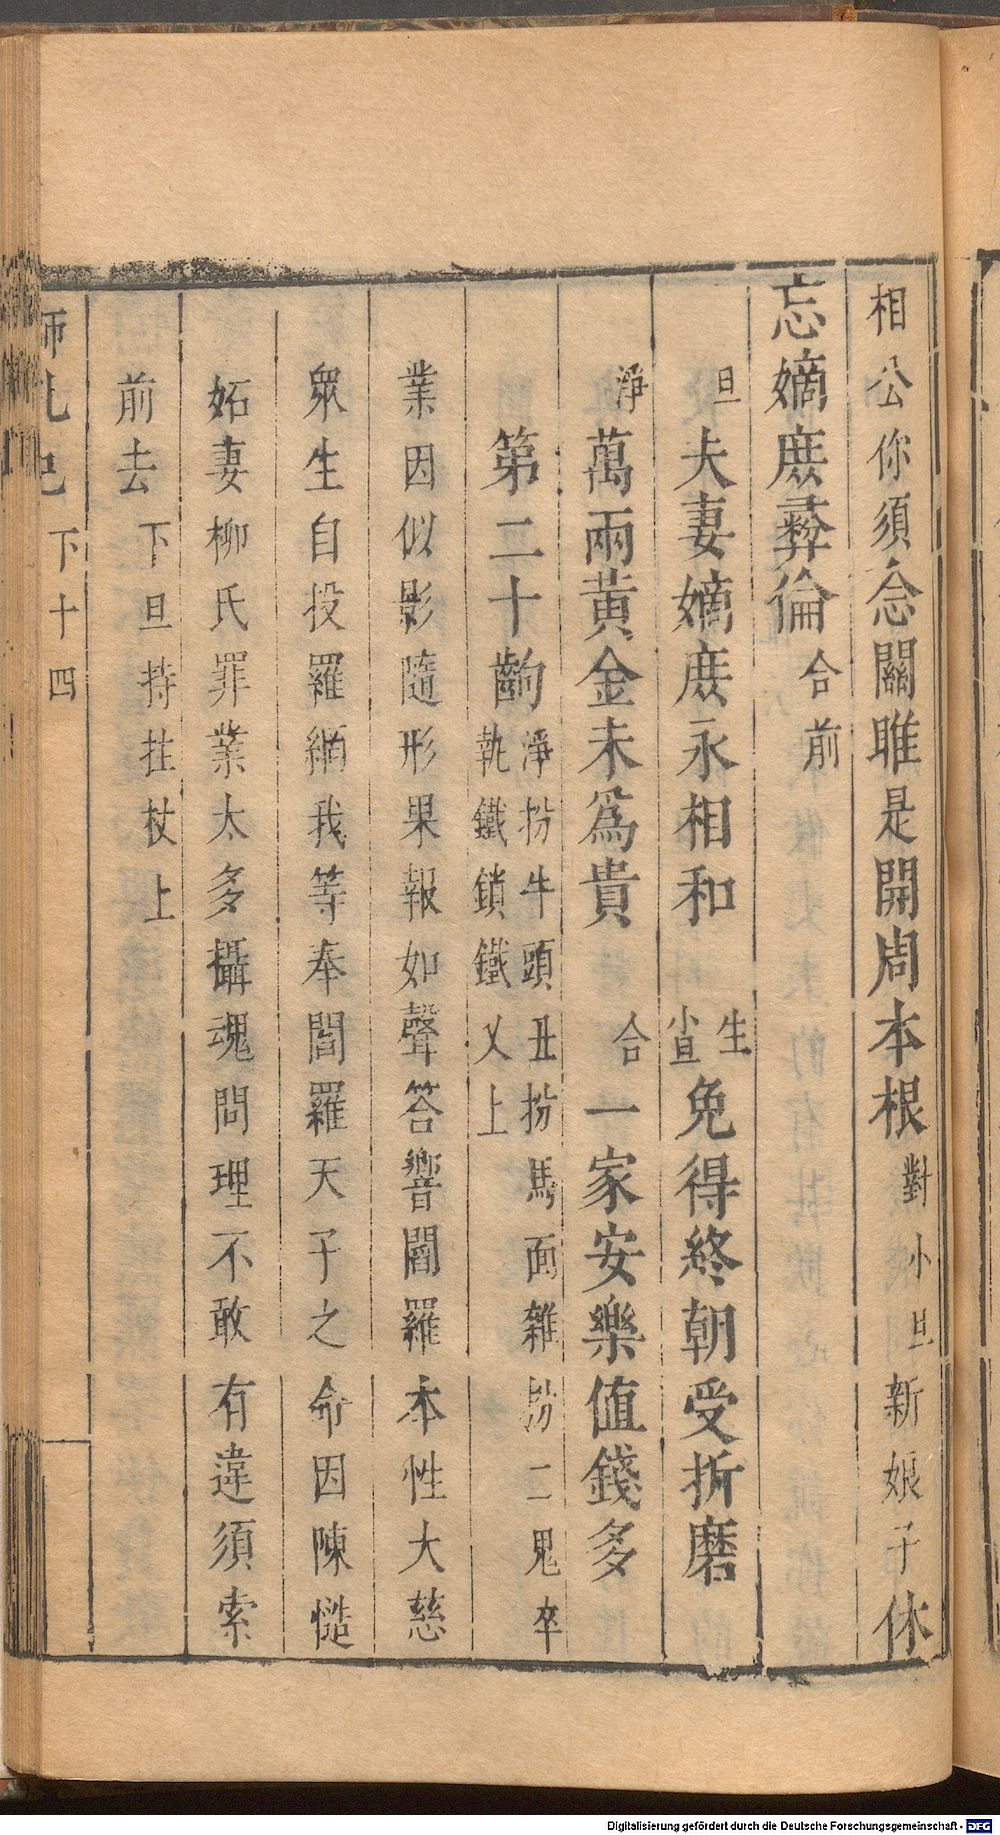 相公你須念關雎是開周本根對小旦新娘子休
忘嫡庶彝倫合前
旦夫妻嫡庶永相和生小旦免得終朝受折磨
淨萬兩黃金未爲貴合一家安樂值錢多
第二十齣淨扮牛頭丑扮馬面雜扮二鬼卒執鐵鎖鐵乂上
業因似影隨形果報如聲答響閻羅本性大慈
衆生自投羅網我等奉閻羅天子之命因陳慥
妬妻柳氏罪業太多攝魂問理不敢有違須索
前去下旦持拄杖上
師吼記下十四
Digitalisierung gefördert durch die Deutsche Forschungsgemeinschaft - DFG